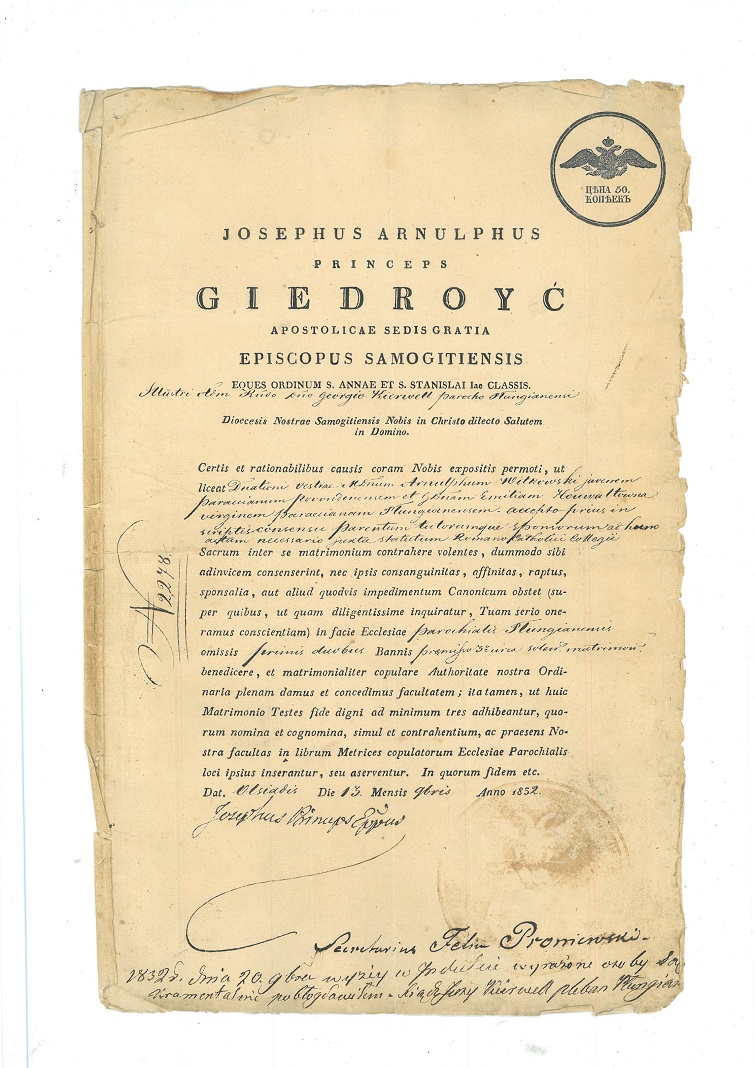 ЦѢНА 50.
КОПѢЕКЪ
JOSEPHUS ARNULPHUS
PRINCEPS
GIEDROYĆ
APOSTOLICAE SEDIS GRATIA
EPISCOPUS SAMOGITIENSIS
EQUES ORDINUM S. ANNAE ET S. STANISLAI Iae CLASSIS.
Illustri Adm Rndo Dno Georgio Kierwell parocho Plungianensi
Dioecesis Nostrae Samogitiensis Nobis in Christo dilecto Salutem
in Domino.
Certis et rationabilibus causis coram Nobis expositis permoti, ut
liceat Dnationi vestrae Arnulphum Witkowski juvenem
paraecianum et Emiliam
virginem paraecianam Plungianensem accepto prius in
scriptis consensu parentum tutorumque sponsorum ad hunc
actum necessario juxta statutum Romano Catholici Collegii
Sacrum inter se matrimonium contrahere volentes, dummodo sibi
adinvicem consenserint, nec ipsis consanguinitas, affinitas, raptus,
sponsalia, aut aliud quodvis impedimentum Canonicum obstet (su-
per quibus, ut quam diligentissime inquiratur, Tuam serio one-
ramus conscientiam) in facie Ecclesiae parochialis Plungianensis
omissis primis duobus Bannis praemissa 3tia
benedicere, et matrimonialiter copulare Authoritate nostra Ordi-
naria plenam damus et concedimus facultatem; ita tamen, ut huic
Matrimonio Testes fide digni ad minimum tres adhibeantur, quo-
rum nomina et cognomina, simul et contrahentium, ac praesens No-
stra facultas in librum Metrices copulatorum Ecclesiae Parochialis
loci ipsius inserantur, seu aserventur. In quorum fidem etc.
Dat. Olsiadis Die 13 Mensis 9bris Anno 1832.
N 2278.
Josephus Princeps Eppus
Secretarius Felix Proniewski
1832 r. dnia 20. 9bra wyżey w Indulcie wyrażone osoby Sa
kramentalnie pobłogosławiłem Xiądz Jerzy Kierwell pleban Plungiań